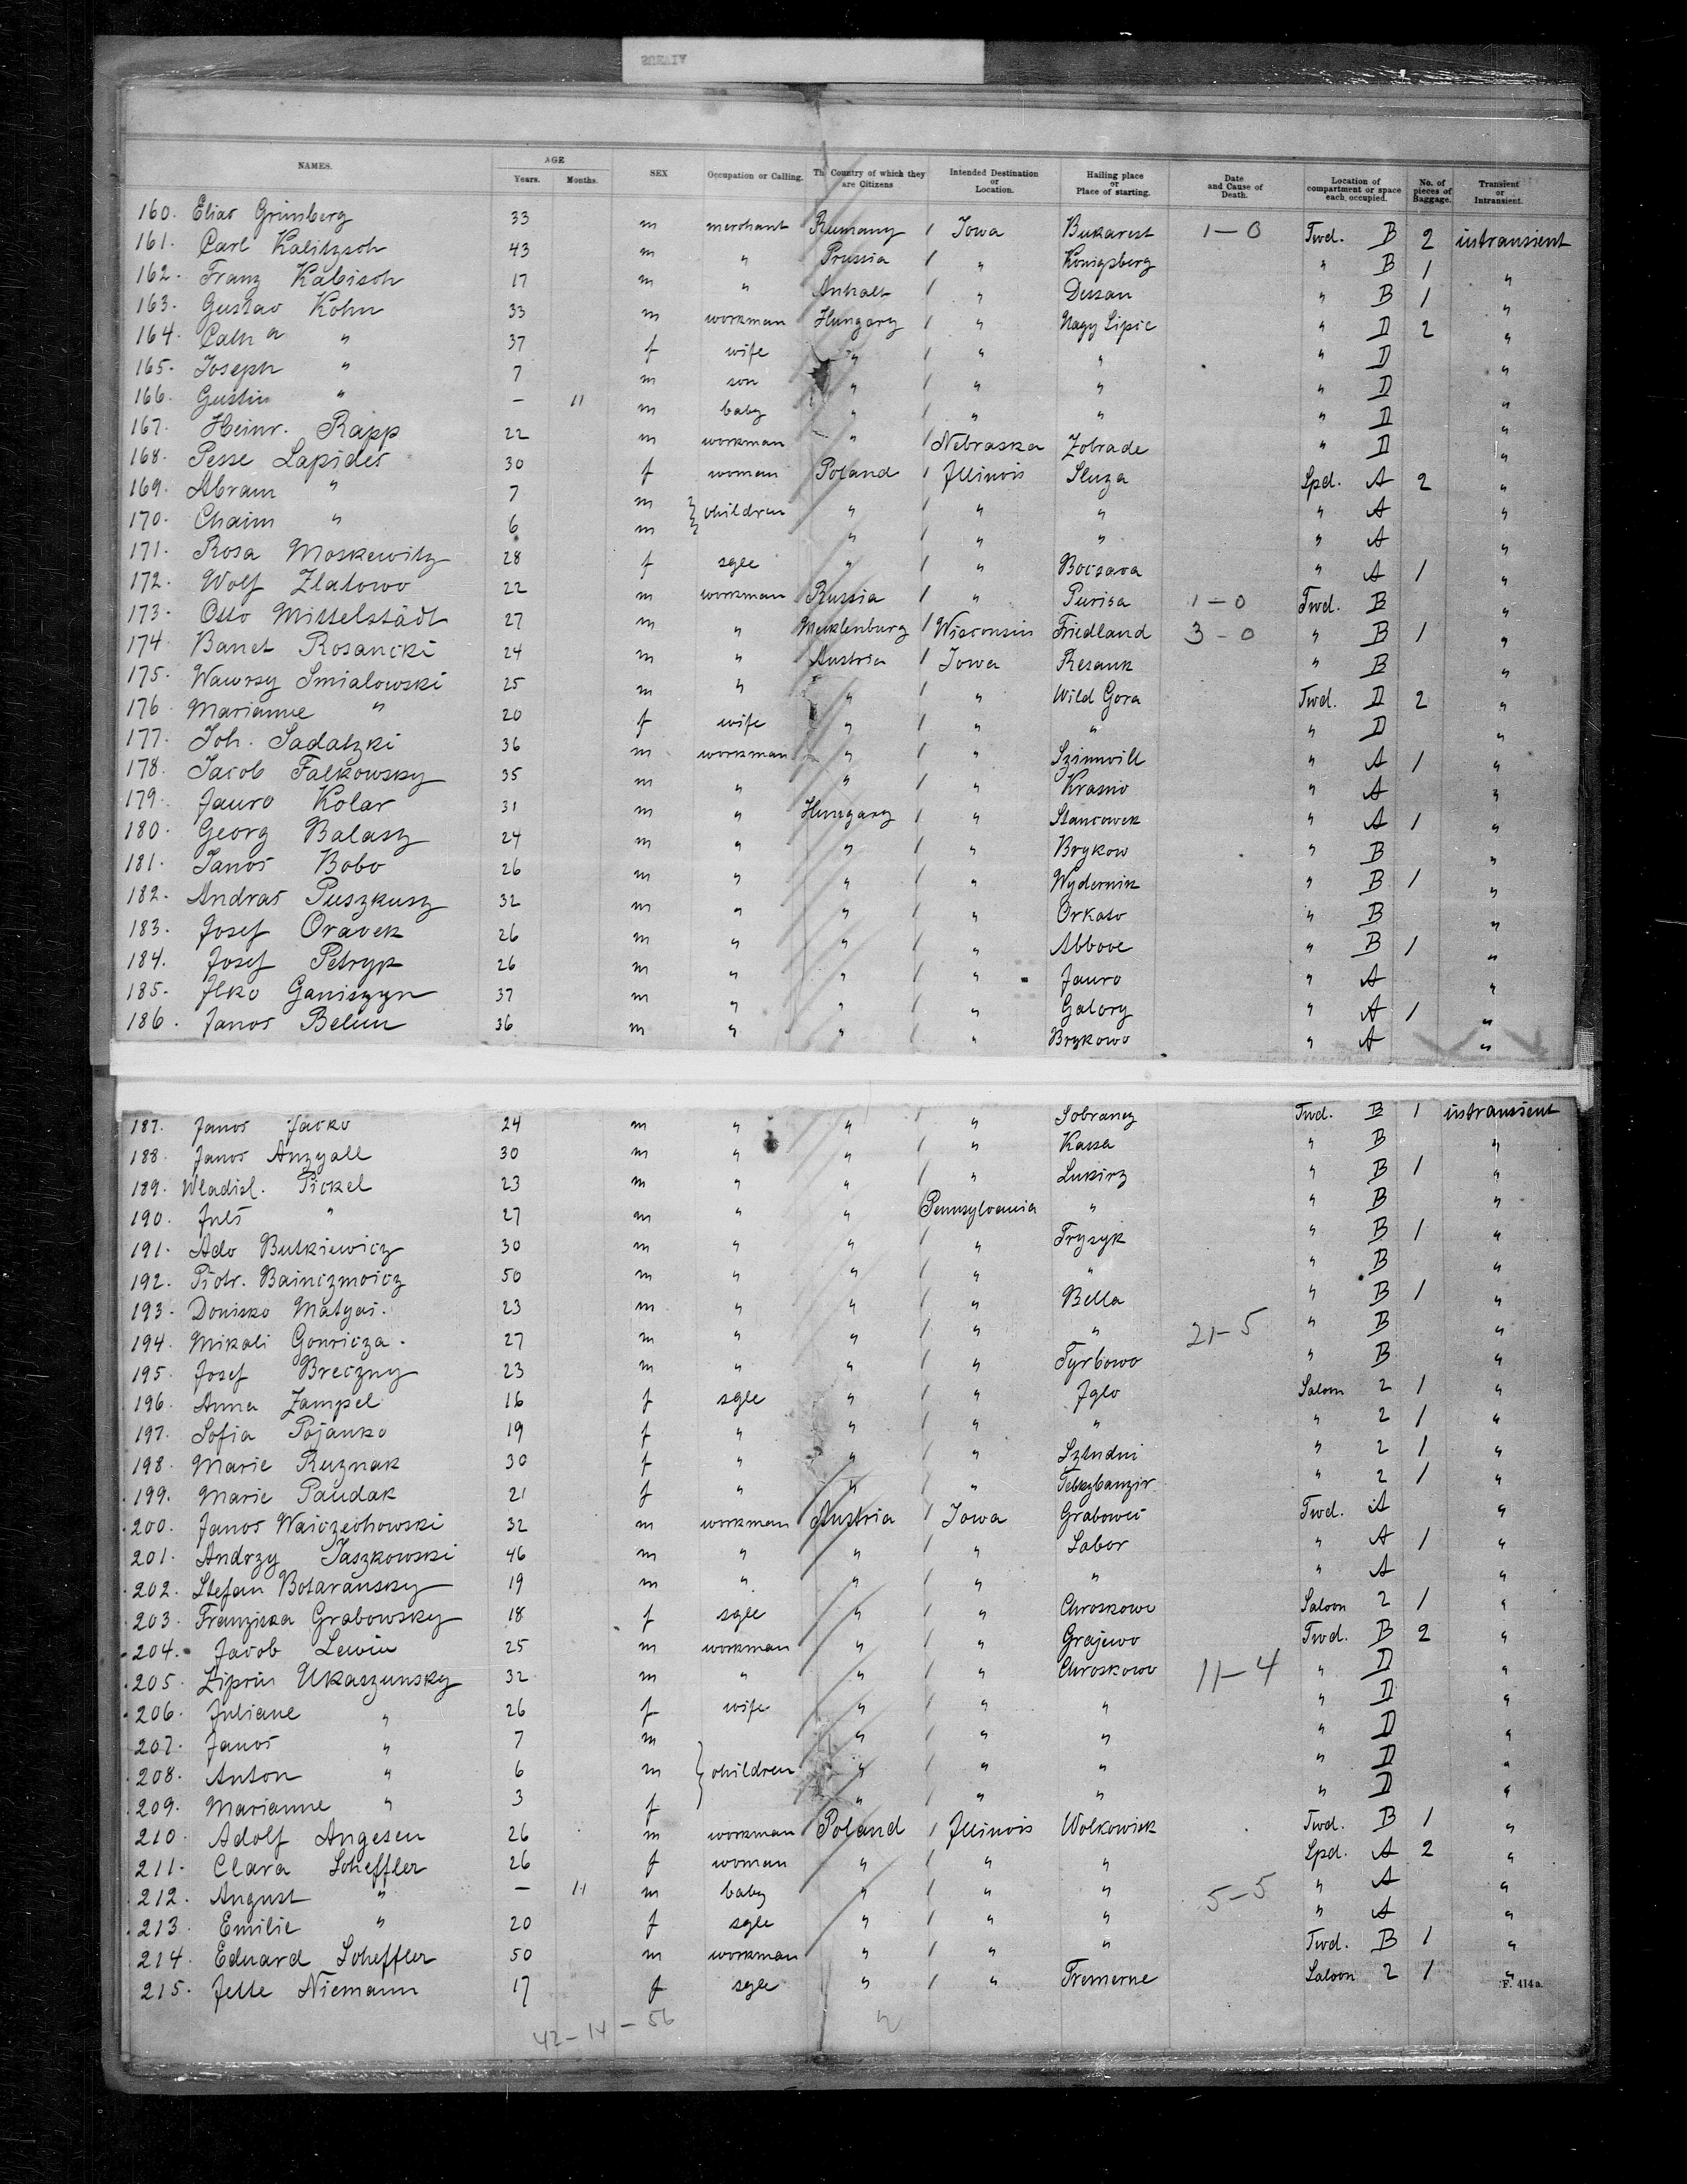 NAMES. AGE Years. Months. SEX Occupation or Calling. The Country of which they are Citizens Intended Destination or Location. Hailing place or Place of starting. Date and Cause of Death. Location of compartment or space each occupied. No. of pieces of Baggage. Transient or Intransient.
160. Elias Grünsberg 33 m merchant Rumany / Iowa Bukarest 1-0 Twd. B 2 intransient
161. Carl Kalitzsch 43 m " Prussia / " Königsberg " B 1 "
162. Franz Kabisch 17 m " Anhalt / " Dessau " B 1 "
163. Gustav Kohn 33 m workman Hungary / " Nagy Lipic " D 2 "
164. Cath a " 37 f wife " / " " " D "
165. Joseph " 7 m son " / " " " D "
166. Gustin " - 11 m baby " / " " " D "
167. Heinr. Rapp 22 m workman " Nebraska Zobrade " D "
168. Pesse Lapides 30 f woman Poland / Illinois Sluza Spd. A 2 "
169. Abram " 7 m } children " / " " " A "
170. Chaim " 6 m " / " " " A "
171. Rosa Moskewitz 28 f sgle " / " Bocsava " A 1 "
172. Wolf Zlatowo 22 m workman Russia / " Purisa 1-0 Twd. B "
173. Otto Mittelstädt 27 m " Mecklenburg / Wisconsin Friedland 3-0 " B 1 "
174. Banet Rosancki 24 m " Austria / Iowa Resank " B "
175. Wawrsy Smialowski 25 m " " / " Wild Gora Twd. D 2 "
176. Marianne " 20 f wife " / " " " D "
177. Joh. Sadatzki 36 m workman " / " Szinwill " A 1 "
178. Jacob Falkowsky 35 m " " / " Krasno " A "
179. Jauro Kolar 31 m " Hungary / " Stancowek " A 1 "
180. Georg Balasz 24 m " " / " Brykow " B "
181. Janos Bobo 26 m " " / " Wydernik " B 1 "
182. Andras Puszkusz 32 m " " / " Orkato " B "
183. Josef Oravek 26 m " " / " Abbove " B 1 "
184. Josef Petryk 26 m " " / " Jauro " A "
185. Ilko Ganiszyn 37 m " " / " Galory " A 1 "
186. Janos Belun 36 m " " / " Brykowo " A "
187. Janos Jacko 24 m " " / " Sobrancz Twd. B 1 intransient
188. Janos Anzyall 30 m " " / " Kassa " B "
189. Wladisl. Pickel 23 m " " / " Lukirz " B 1 "
190. Juls " 27 m " " Pennsylvania " " B "
191. Ado Butkiewicz 30 m " " / " Trysyk " B 1 "
192. Piotr. Bainczmoicz 50 m " " / " " " B "
193. Donisko Matyas. 23 m " " / " Bella " B 1 "
194. Mikali Gonricza. 27 m " " / " " 21-5 " B "
195. Josef Breczny 23 m " " / " Tyrbowo " B "
196. Anna Zampel 16 f sgle " / " Iglo Saloon 2 1 "
197. Sofia Pojanko 19 f " " / " " " 2 1 "
198. Marie Ruznak 30 f " " / " Sztudni " 2 1 "
199. Marie Paudak 21 f " " / " " 2 1 "
200. Janos Waiczechowski 32 m workman Austria / Iowa Grabowci Twd. A "
201. Andrzy Jaszkowski 46 m " " / " Sabor " A 1 "
202. Stefan Botaransky 19 m " " / " " " A "
203. Franziska Grabowsky 18 f sgle " / " Chroskowe Saloon 2 1 "
204. Jacob Lewin 25 m workman " / " Grajewo Twd. B 2 "
205. Ziprin Ukaszunsky 32 m " " / " Chroskowo 11-4 " D "
206. Juliane " 26 f wife " / " " " D "
207. Janos " 7 m " / " " " D "
208. Anton " 6 m } children " / " " " D "
209. Marianne " 3 f " / " " " D "
210. Adolf Angesen 26 m workman Poland / Illinois Wolkowisk Twd. B 1 "
211. Clara Scheffler 26 f woman " / " " Spd. A 2 "
212. August " - 11 m baby " / " " 5-5 " A "
213. Emilie " 20 f sgle " / " " " A "
214. Eduard Scheffler 50 m workman " / " " Twd. B 1 "
215. Jette Niemann 17 f sgle " / " Tremerne Saloon 2 1 "
F. 414a.
42-14-56